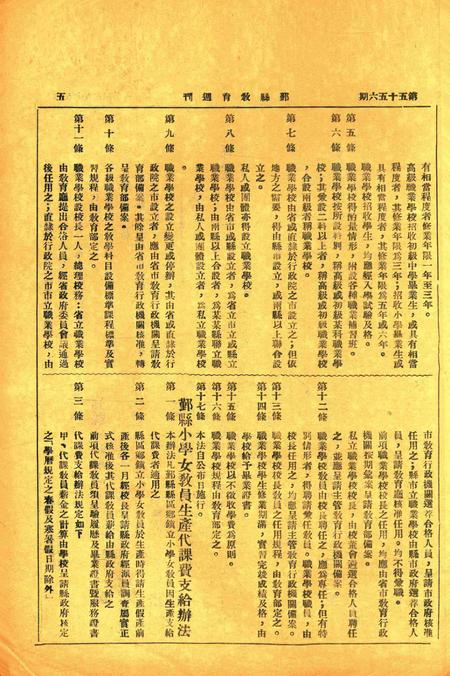 第五十五六期
鄞縣教育週刊
五
有相當程度者修業年限一年至三年。
高級職業學校招收初級中學畢業生，或具有相當
程度者，其修業年限為三年；招收小學畢業生或
具有相當程度者，其修業年限為五年或六年。
職業學校招收學生，均應經入學試驗及格。
第五條　職業學校得酌量情形，附設各種職業補習班。
第六條　職業學校依所設科別，稱高級或初級某科職業學
校；其兼設二科以上者，稱高級或初級職業學校
，合設兩級者稱職業學校。
第七條　職業學校由省或直隸於行政院之市設立之；但依
地方之需要，得由縣市設立，或兩縣以上聯合設
立之。
私人或團體亦得設立職業學校。
第八條　職業學校由省市或縣設立者，為省立市立或縣立
職業學校；由兩縣以上合設者，為某某縣聯立職
業學校；由私人或團體設立者，為私立職業學校
。
第九條　職業學校之設立變更或停辦，其由省或直隸於行
政院之市設立者，應由省市教育行政機關呈請教
育部備案。其餘呈由省市教育行政機關核准，轉
呈教育部備案。
第十條　各級職業學校之教學科目設備標準課程標準及實
習規程，由教育部定之。
第十一條　職業學校設校長一人，總理校務；省立職業學校
由教育廳提出合格人員，經省政府委員會議通過
後任用之；直隸於行政院之市市立職業學校，由
市教育行政機關選荐合格人員，呈請市政府核准
任用之；縣市立職業學校由縣市政府選荐合格人
員，呈請教育廳核准任用，均不得兼職。
前項職業學校校長之任用，均應由省市教育行政
機關按期彙案呈請教育部備案。
私立職業學校校長，由校董會遴選合格人員聘任
之，並應呈請主管教育行政機關備案。
第十二條　職業學校教員由校長聘任之，應為專任；但有特
別情形者，得聘請兼任教員。職業學校職員，由
校長任用之，均應呈請主管教育行政機關備案。
第十三條　職業學校校長教員之任用規程，由教育部定之。
第十四條　職業學校學生修業期滿，實習完竣成績及格，由
學校給予畢業證書。
第十五條　職業學校以不徵收學費為原則。
第十六條　職業學校規程由教育部定之。
第十七條　本法自公布日施行。
鄞縣小學女教員生產代課費支給辦法
第一條　本辦法凡鄞縣縣區鄉鎮立小學女教員因生產支給
代課費者適用之
第二條　縣區鄉鎮立小學女教員於生產時得請生產假產前
產後各一月經校長呈請縣政府經派員調查屬實正
式核准後其代課教員薪給由縣政府支給之
前項代課教員須呈驗履歷及畢業證書暨服務證書
第三條　代課費支給辦法規定如下
甲、代課教員薪金之計算由學校呈請縣政府核定
之「學曆規定之春假及寒暑假日期除外」